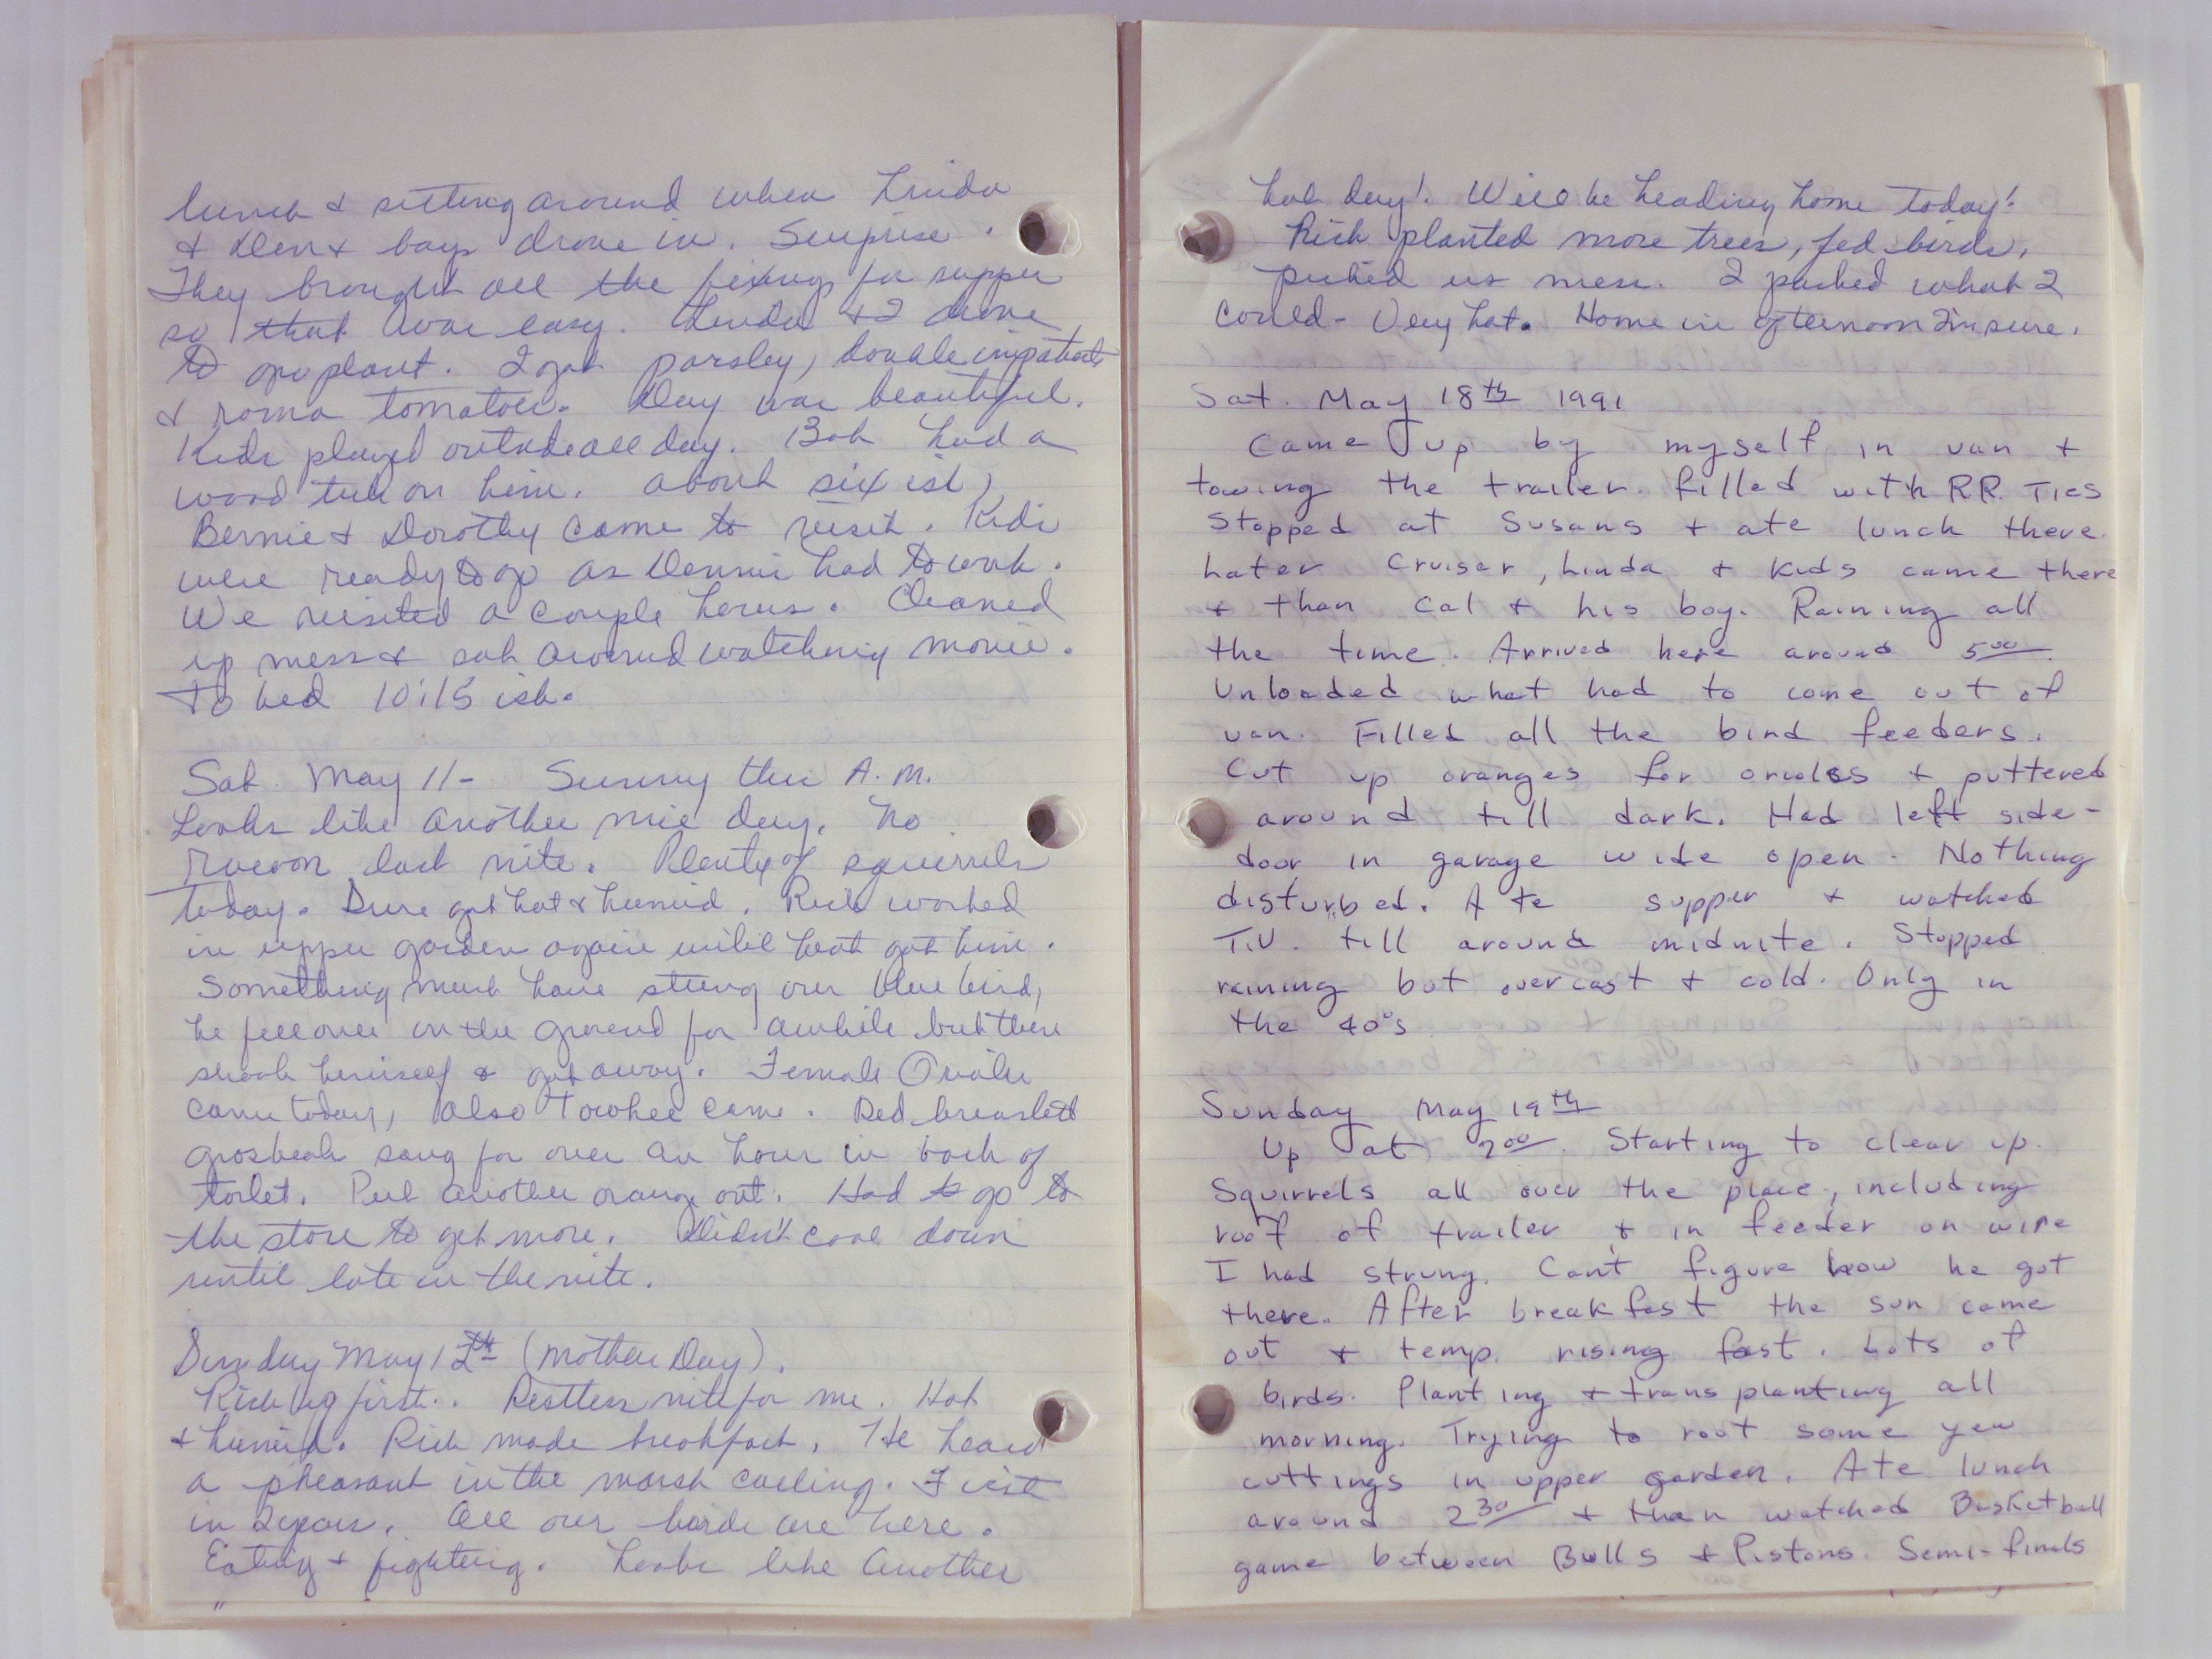 lunch & sitting around when Linda
& Den & boys drove in. Surprise.
They brought all the fixings for supper
so that was easy. Linda & I drove
to get plant. I got parsley, double impatients
& roma tomatoes. Day was beautiful.
Kids played outside all day. Bob had a
wood tick on him. About six ish,
Bernie & Dorothy came to visit. Kids
were ready to go as Dennis had to work.
We visited a couple hours. Cleaned
up mess & sat around watching movie.
To bed 10:15 ish.
Sat. May 11- Sunny this A.M.
Looks like another nice day. No
racoon last nite. Plenty of squirrels
today. Sure got hot & humid. Rich worked
in upper garden again until heat got him.
Something must have stung our blue bird,
he fell over on the ground for awhile but then
shook himself & got away. Female Oriole
came today, also Towhee came. Red breasted
grosbeak sang for over an hour in back of
toilet. Put another orange out. Had to go to
the store to get more. Didn't cool down
until late in the nite.
Sunday May 12th (Mother Day).
Rich up first.. Restless nite for me. Hot
& humid. Rich made breakfast. He heard
a pheasant in the marsh calling. First
in 2 years. All our birds are here.
Eating & fighting. Looks like another
hot day! Will be heading home today!
Rich planted more trees, fed birds,
picked up mess. I packed what I
could - Very hot. Home in afternoon I'm sure.
Sat. May 18th 1991
Came up by myself in van &
towing the trailer. filled with RR. Ties
Stopped at Susans & ate lunch there.
Later Cruiser, Linda & kids came there
& than Cal & his boy. Raining all
the time. Arrived here around 5 00.
Unloaded what had to come out of
van. Filled all the bird feeders.
Cut up oranges for orioles & puttered
around till dark. Had left side-
door in garage wide open. Nothing
disturbed. Ate supper & watched
T.V. till around midnite. Stopped
raining but overcast & cold. Only in
the 40°s
Sunday May 19th
Up at 7 00. Starting to clear up.
Squirrels all over the place, including
roof of trailer & in feeder on wire
I had strung. Can't figure how he got
there. After breakfast the sun came
out & temp. rising fast. Lots of
birds. Planting & transplanting all
morning. Trying to root some yew
cuttings in upper garden. Ate lunch
around 2 30 & than watched Basketball
game between Bulls & Pistons. Semi-finals